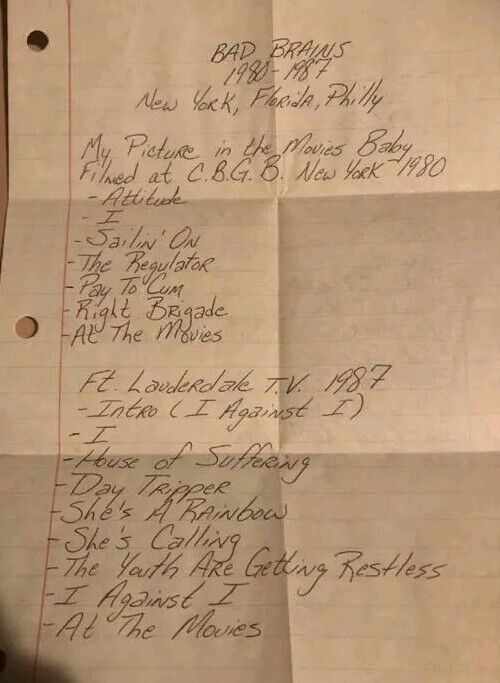 BAD BRAINS
1980-1987
New York, Florida, Philly
My Picture in the Movies Baby
Filmed at C.B.G.B. New York 1980
- Attitude
- I
- Sailin' On
- The Regulator
- Pay To Cum
- Right Brigade
- At The Movies
Ft. Lauderdale T.V. 1987
- Intro (I Against I)
- I
- House of Suffering
- Day Tripper
- She's A Rainbow
- She's Calling
- The Youth Are Getting Restless
- I Against I
- At The Movies